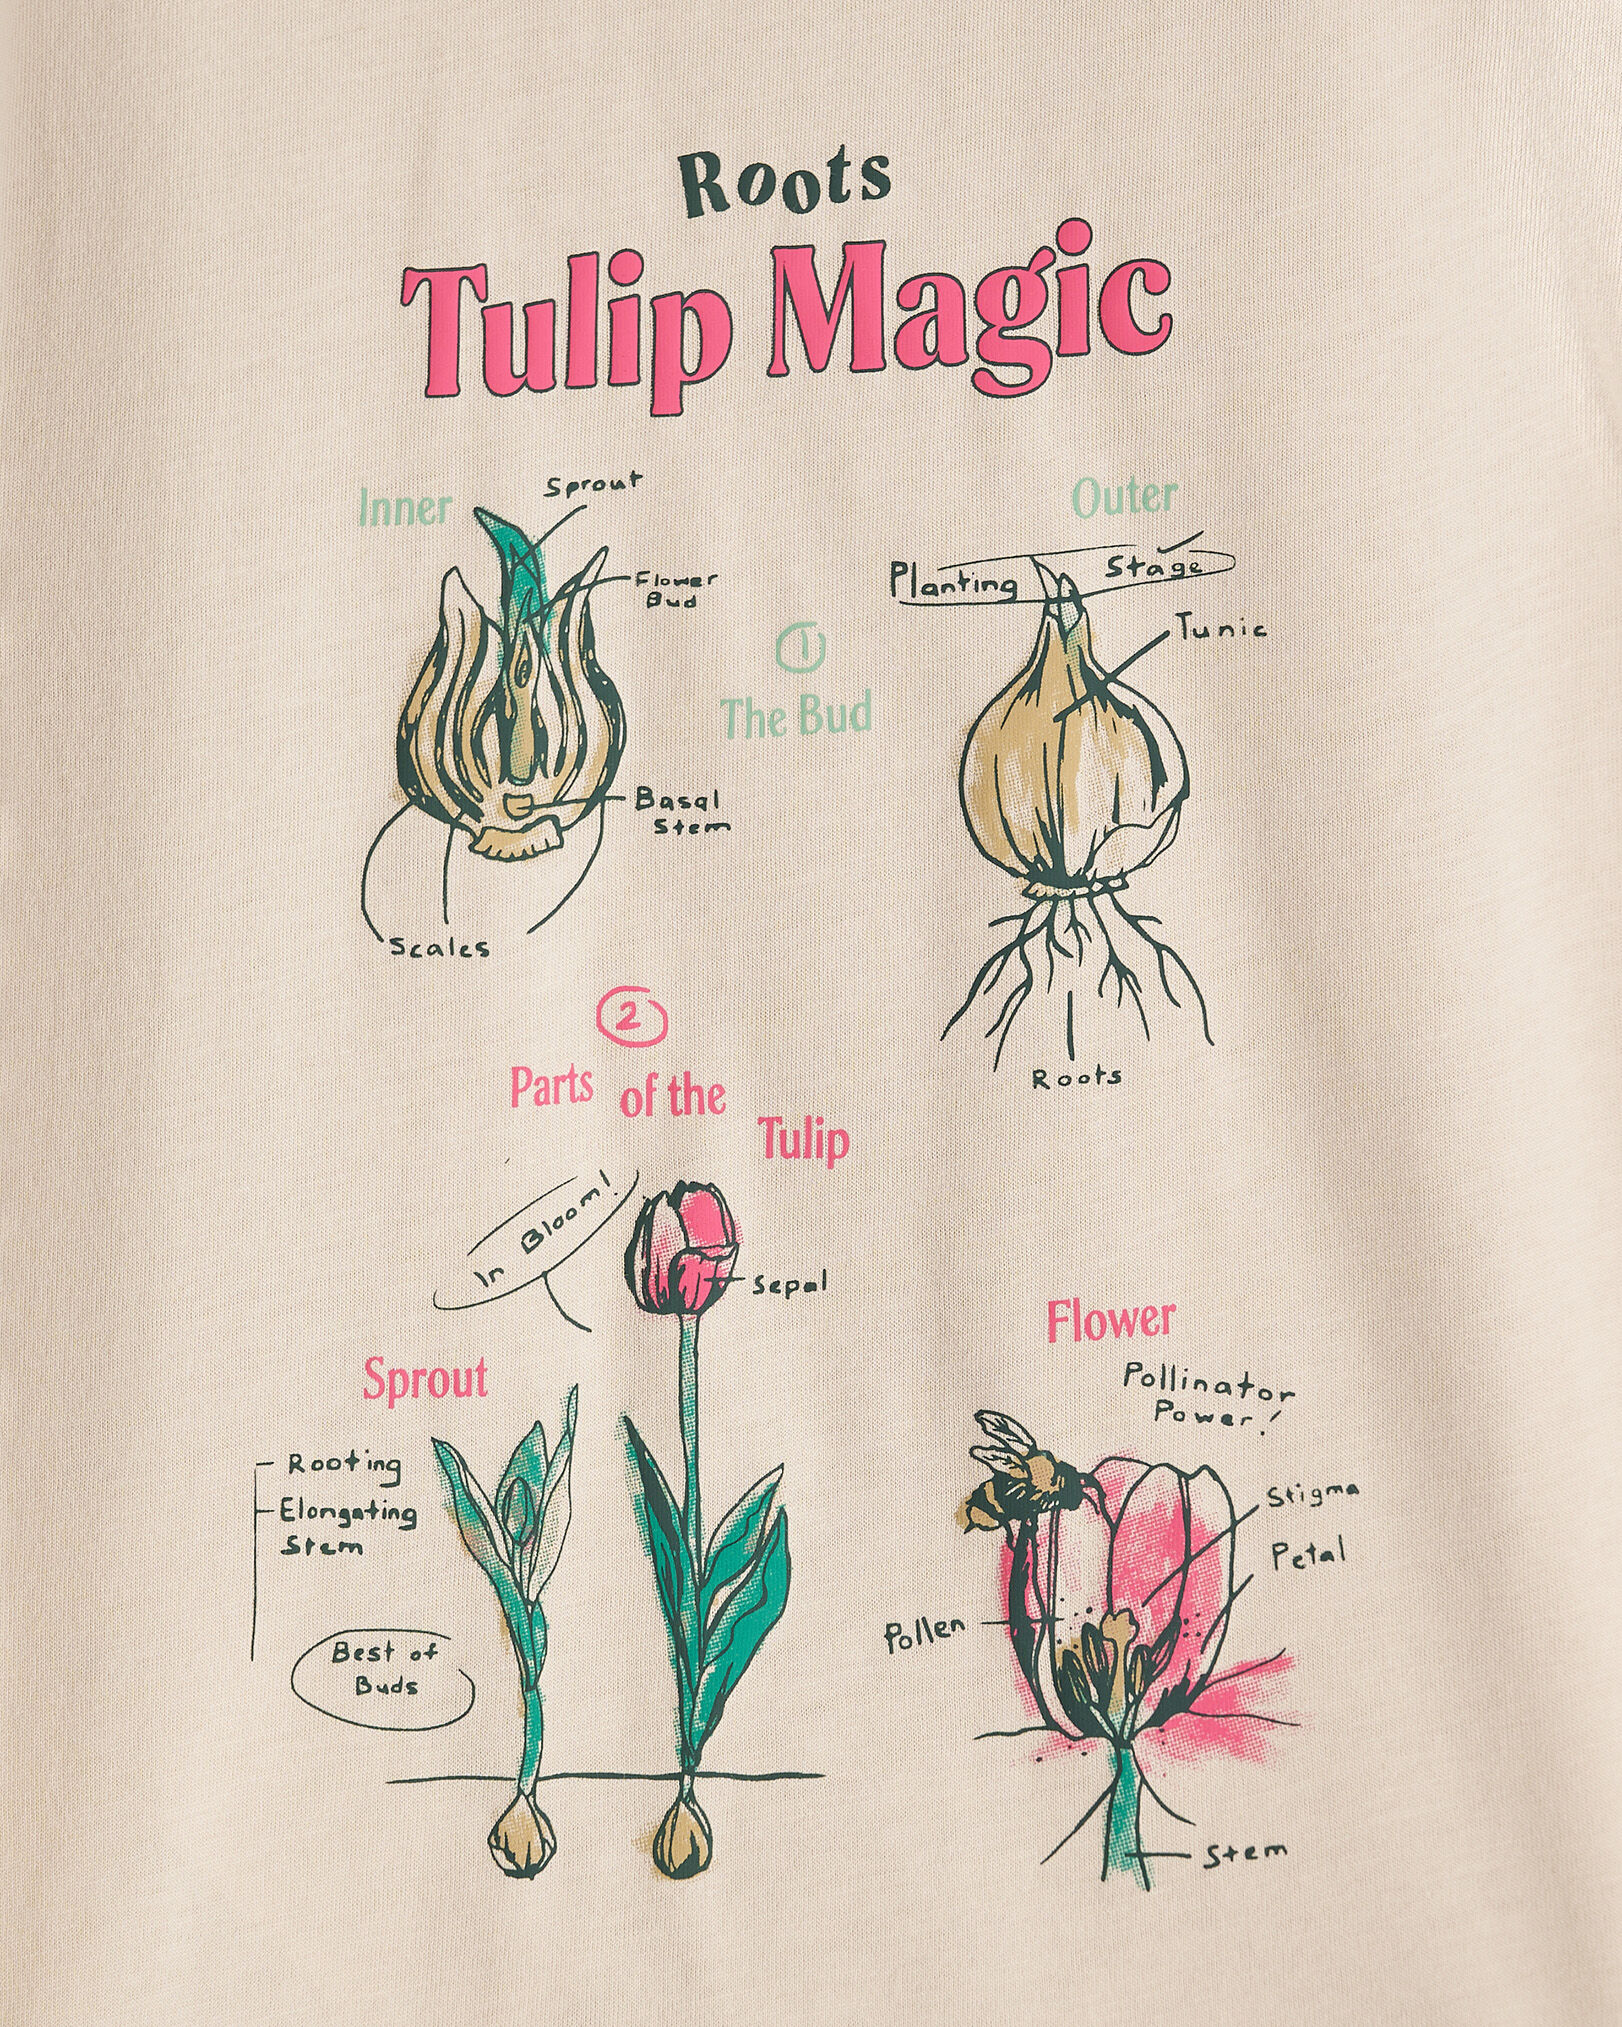 Roots
Tulip Magic
Inner
Sprout
Flower
Bud
Basal
Stem
Scales
1
The Bud
Outer
Planting Stage
Tunic
Roots
2
Parts of the
Tulip
In Bloom!
Sepal
Sprout
Rooting
Elongating
Stem
Best of
Buds
Flower
Pollinator
Power!
Stigma
Petal
Pollen
Stem